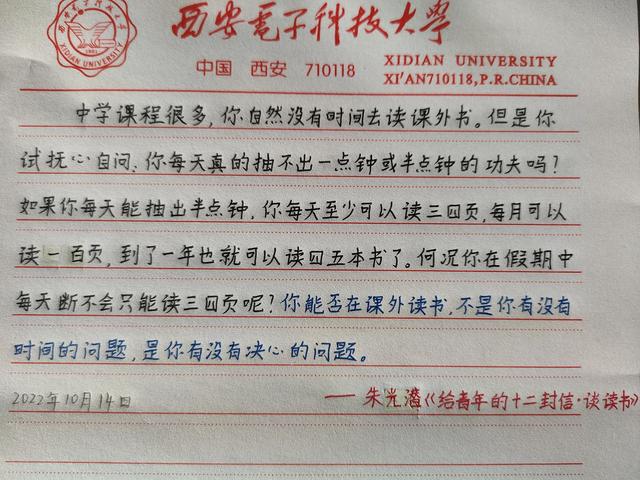 西安電子科技大學
XIDIAN UNIVERSITY
中国 西安 710118
XIDIAN UNIVERSITY
XI'AN710118,P.R.CHINA
中学课程很多,你自然没有时间去读课外书。但是你
试抚心自问:你每天真的抽不出一点钟或半点钟的功夫吗?
如果你每天能抽出半点钟,你每天至少可以读三四页,每月可以
读一百页,到了一年也就可以读四五本书了。何况你在假期中
每天断不会只能读三四页呢?你能否在课外读书,不是你有没有
时间的问题,是你有没有决心的问题。
2022年10月14日
——朱光潜《给青年的十二封信·谈读书》